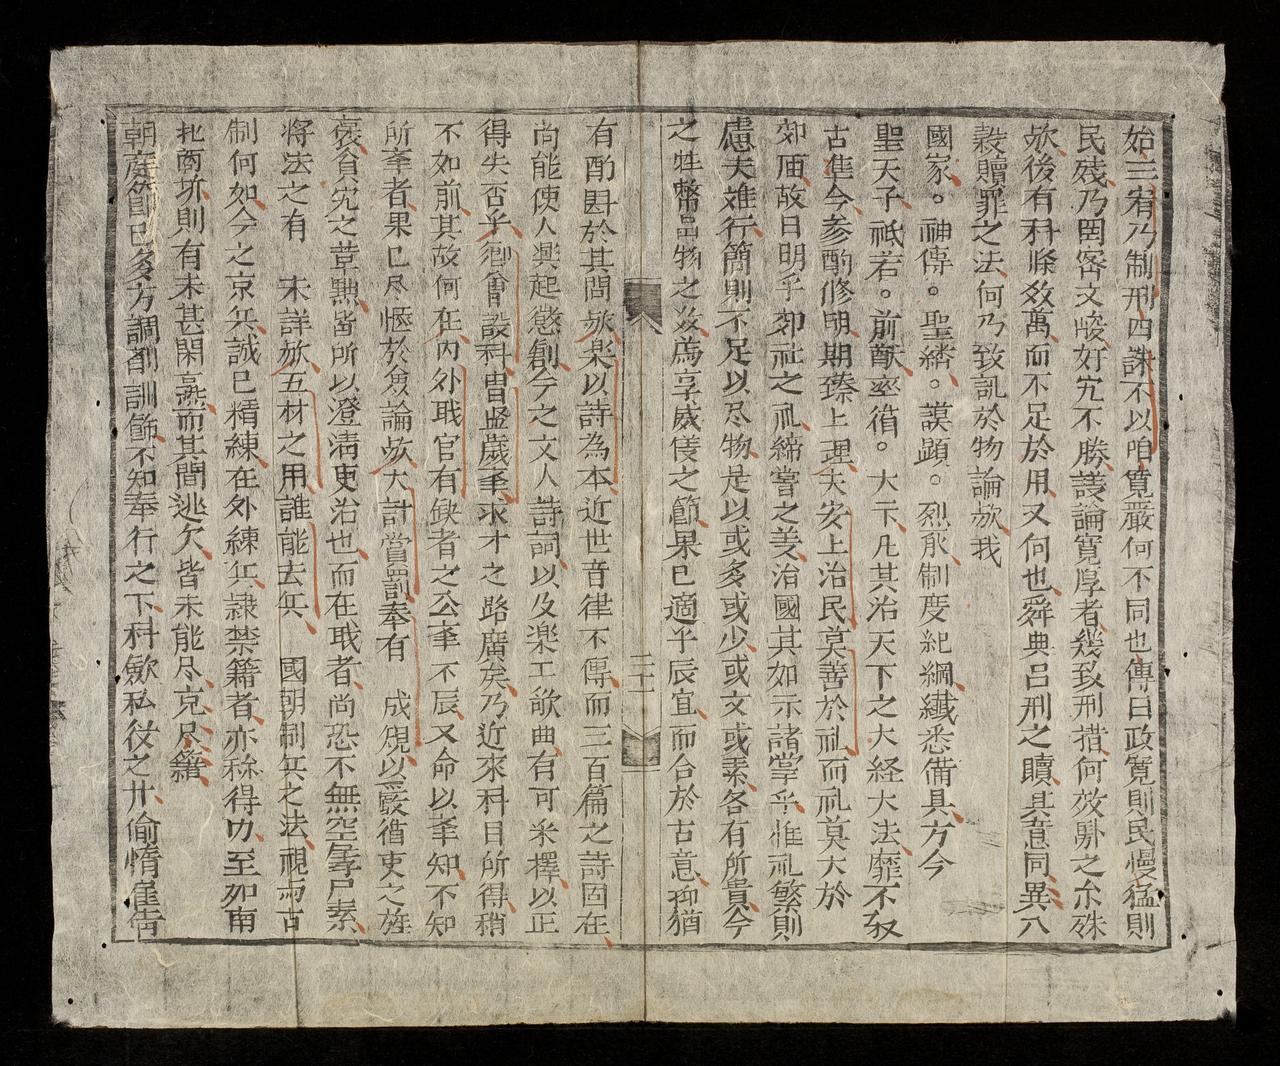 始三宥乃制刑四誅不以咱寬嚴何不同也傳曰政寬則民慢猛則
民殘乃罔密文峻好宄不勝議論寬厚者幾致刑措何效歟之尒殊
欤後有科條敎萬而不足於用又何也舜典吕刑之贖其意同異八
穀贖罪之法何乃致訊於物論欤我
國家神傳聖繼謨顕烈欣制度紀綱纖悉備具方今
聖天子祗若前猷率循大卞凡其治天下之大経大法靡不叙
古準今参酌修明期臻上理夫安上治民莫善於礼而礼莫大於
郊庙故曰明乎郊社之礼締嘗之義治國其如示諸掌乎惟礼繁則
慮夫难行簡則不足以尽物是以或多或少或文或素各有所貴今
之牲幣品物之数為享戚俊之節果已適乎辰宜而合於古意抑猶
三十一
有酌斟於其間欤楽以詩為本近世音律不傳而三百篇之詩固在
尚能使人興起懲創今之文人詩詞以及楽工歌曲有可采擇以正
得失否乎御曾設科曹盛歲举求才之路廣矣乃近來科目所得稍
不如前其故何在内外职官有缺者之公举不辰又命以举知不知
所举者果已尽惬於僉論欤大計賞罰奉有 成䂓以覈循吏之旌
褒貧宄之茸㸃皆所以澄清吏治也而在职者尚恐不無空孱尸素
將法之有 未詳欤五材之用誰能去兵 國朝制兵之法視雨古
制何如今之京兵誠已精練在外練兵隷禁籍者亦稱得力至如南
北两圻則有未甚閑燕而其間逃欠皆未能尽克尽籍
朝庭節已多方調剤訓飾不知奉行之下科歛私役之廾偷惰雇倩